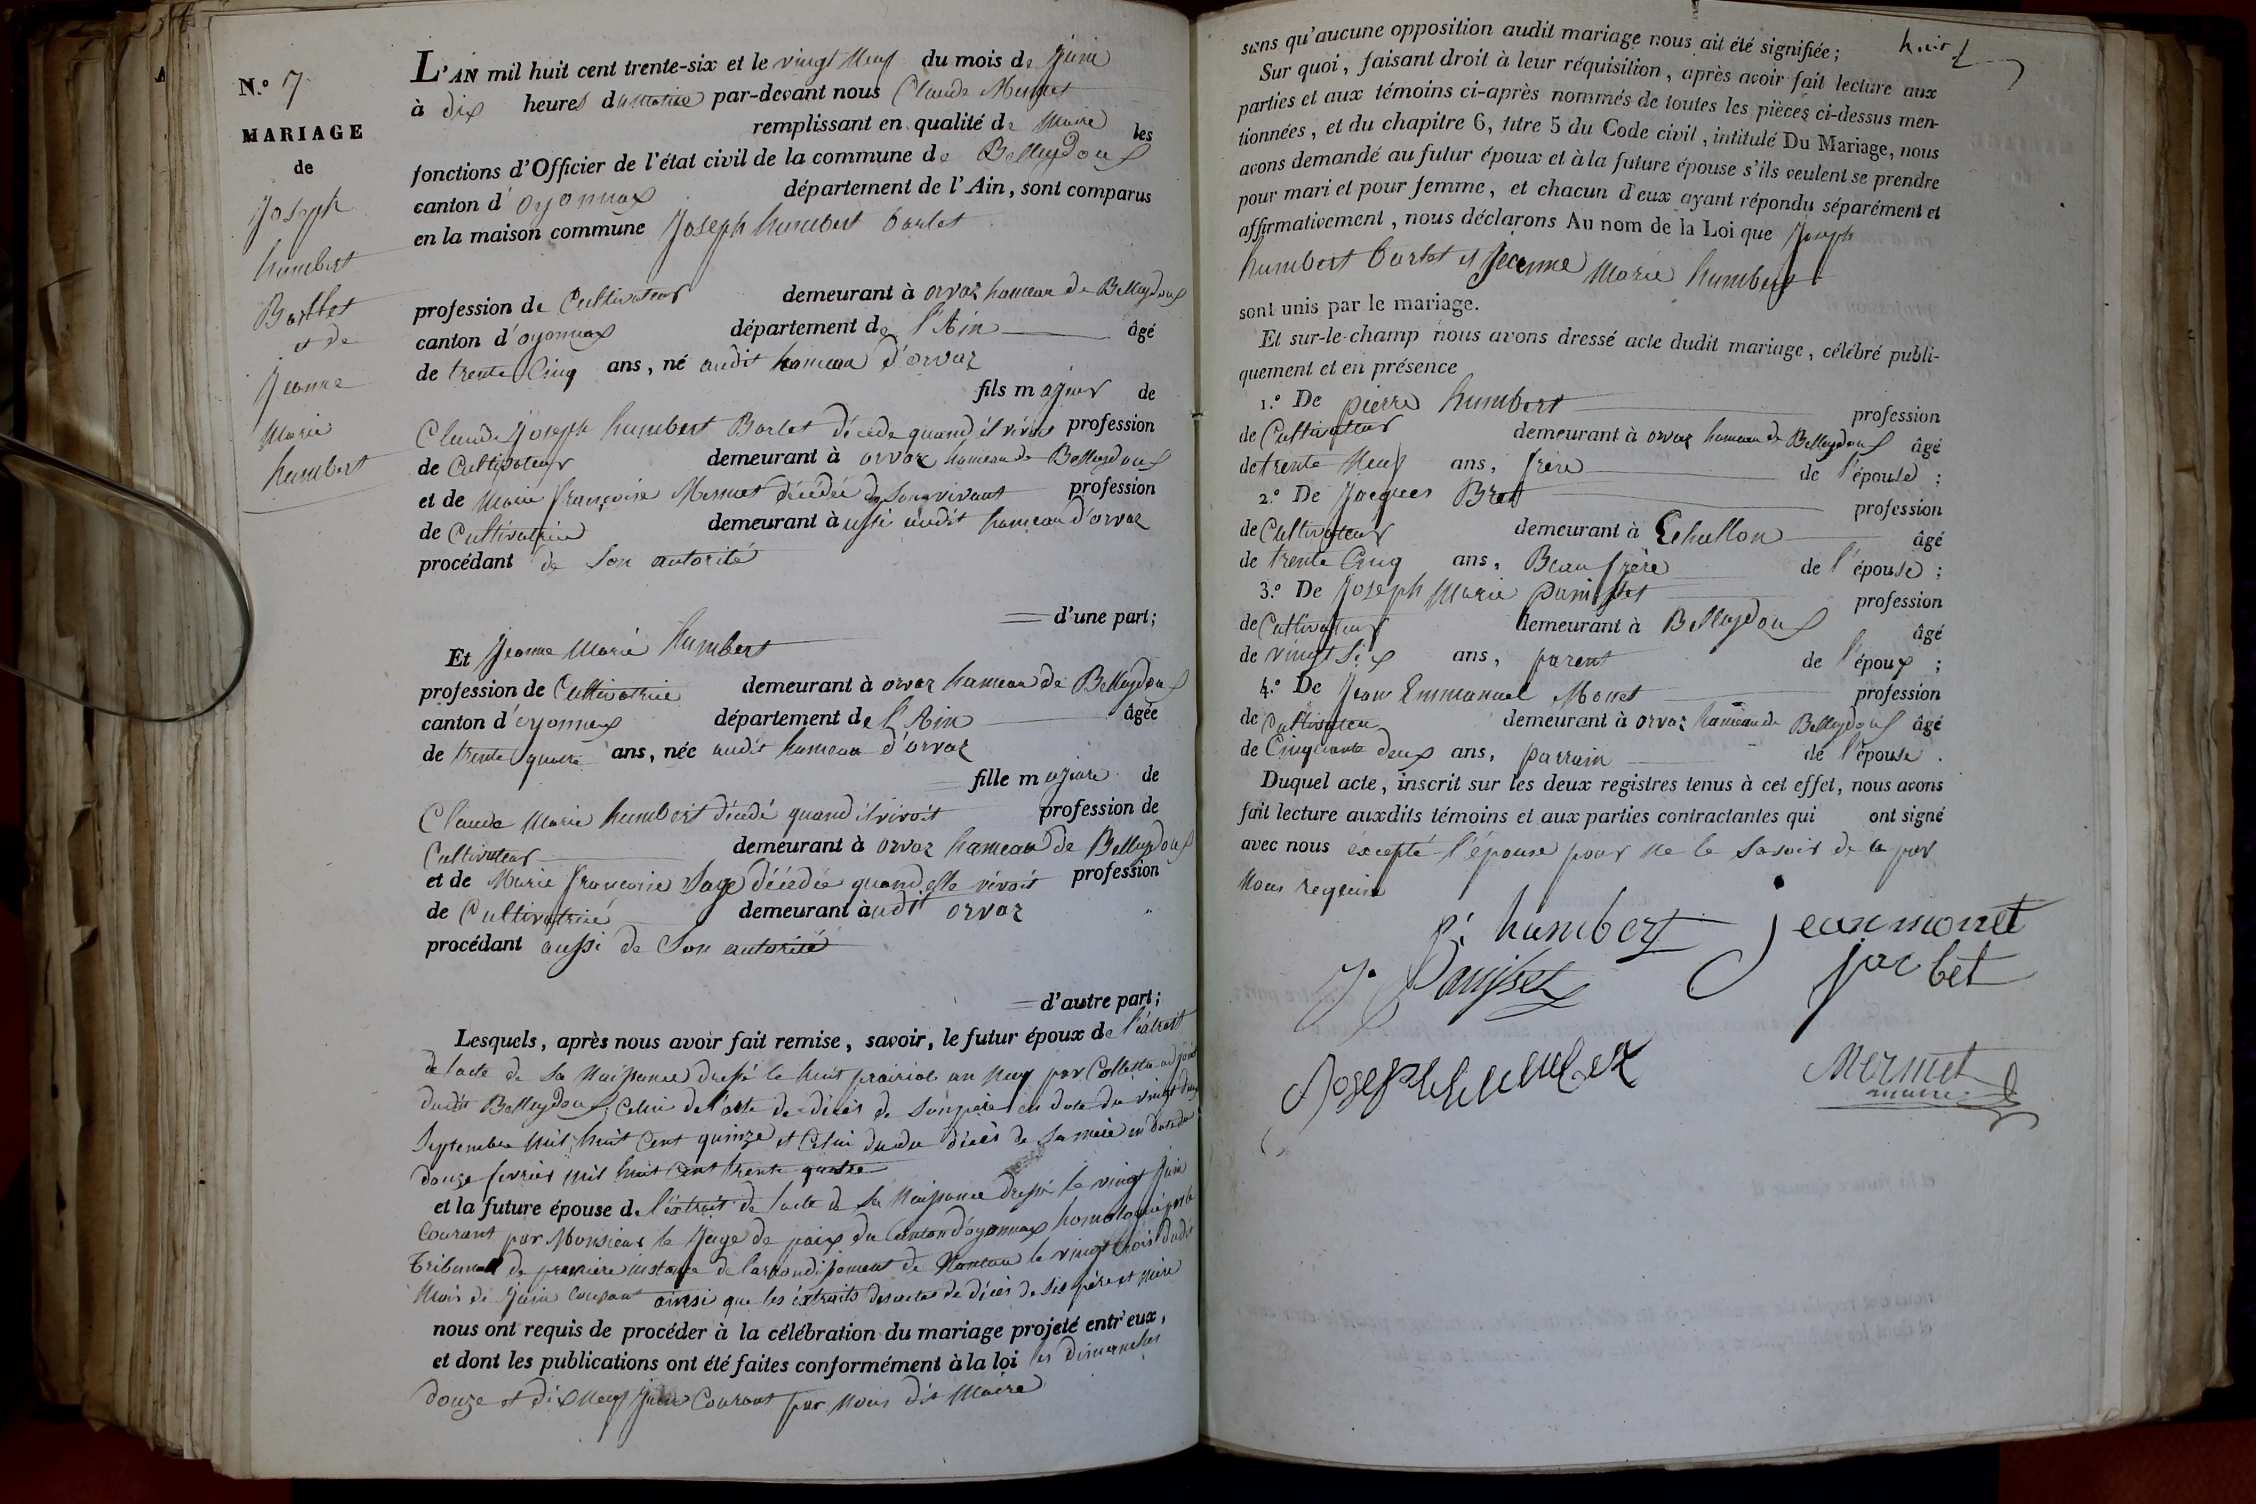 N.º 7
MARIAGE
de
Joseph
humbert
Barlet
et de
Jeanne
Marie
humbert
L'AN mil huit cent trente-six et le vingt Neuf du mois de Juin
à dix heures du matin par-devant nous Claude Mermet
remplissant en qualité de Maire les
fonctions d'Officier de l'état civil de la commune de Belleydoux
canton d'oyonnax département de l'Ain, sont comparus
en la maison commune Joseph humbert barlet
profession de Cultivateur demeurant à orvaz hameau de Belleydoux
canton d'oyonnax département de l'Ain âgé
de trente Cinq ans, né audit hameau d'orvaz
fils majeur de
Claude Joseph humbert Barlet décédé quand il vivoit profession
de Cultivateur demeurant à orvaz hameau de Belleydoux
et de Marie françoise Mermet décédée de Son vivant profession
de Cultivatrice demeurant aussi audit hameau d'orvaz
procédant de Son autorité
d'une part;
Et Jeanne Marie humbert
profession de Cultivatrice demeurant à orvaz hameau de Belleydoux
canton d'oyonnax département de l'Ain âgée
de trente quatre ans, née audit hameau d'orvaz
fille majeure de
Claude Marie humbert décédé quand il vivoit profession de
Cultivateur demeurant à orvaz hameau de Belleydoux
et de Marie françoise Sage décédée quand elle vivoit profession
de Cultivatrice demeurant audit orvaz
procédant aussi de Son autorité
d'autre part;
Lesquels, après nous avoir fait remise, savoir, le futur époux de l'extrait
de l'acte de Sa Naissance dressé le huit prairial an Neuf par Collet adjoint
dudit Belleydoux, Celui de l'acte de décès de Son père en date du vingt deux
Septembre Mil huit Cent quinze et Celui du décès de Sa mère en date du
douze fevrier Mil huit Cent trente quatre
et la future épouse de l'éxtrait de l'acte de Sa Naissance dressé le vingt Juin
Courant par Monsieur le Juge de paix du Canton d'oyonnax homologué par le
tribunal de première instance de l'arrondissement de Nantua le vingt trois dudit
Mois de Juin Courant ainsi que les éxtraits des actes de décès de Ses père et Mère
nous ont requis de procéder à la célébration du mariage projeté entr'eux,
et dont les publications ont été faites conformément à la loi les dimanches
douze et dix Neuf Juin Courant par Nous dit Maire
huit
sans qu'aucune opposition audit mariage nous ait été signifiée;
Sur quoi, faisant droit à leur réquisition, après avoir fait lecture aux
parties et aux témoins ci-après nommés de toutes les pièces ci-dessus men-
tionnées, et du chapitre 6, titre 5 du Code civil, intitulé Du Mariage, nous
avons demandé au futur époux et à la future épouse s'ils veulent se prendre
pour mari et pour femme, et chacun d'eux ayant répondu séparément et
affirmativement, nous déclarons Au nom de la Loi que Joseph
humbert barlet et Jeanne Marie humbert
sont unis par le mariage.
Et sur-le-champ nous avons dressé acte dudit mariage, célébré publi-
quement et en présence
1.º De pierre humbert profession
de Cultivateur demeurant à orvaz hameau de Belleydoux âgé
de trente Neuf ans, frère de l'épouse;
2.º De Jacques Bret profession
de Cultivateur demeurant à Echallon âgé
de trente Cinq ans, Beau frère de l'épouse;
3.º De Joseph Marie panisset profession
de Cultivateur demeurant à Belleydoux âgé
de vingt Six ans, parent de l'époux;
4.º De Jean Emmanuel Monet profession
de Cultivateur demeurant à orvaz hameau de Belleydoux âgé
de Cinquante deux ans, parrain de l'épouse.
Duquel acte, inscrit sur les deux registres tenus à cet effet, nous avons
fait lecture auxdits témoins et aux parties contractantes qui ont signé
avec nous éxcepté l'épouse pour Ne le Savoir de ce par
Nous requise
Pi humbert jean monet
Jh Panisset jac bet
Joseph humber
Mermet
maire